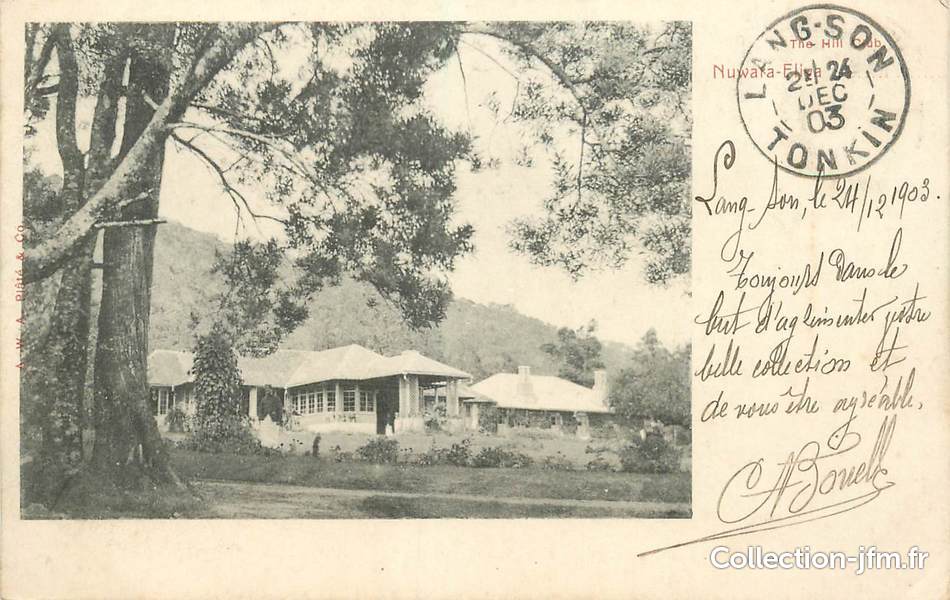 The Hill Club
Nuwara-Eliya
LANG-SON
24
DEC
03
TONKIN
Lang-Son, le 24/12 1903.
Toujours dans le
but d'aglimenter votre
belle collection et
de vous être agréable,
A. W. A. Plâté & Co.
Collection-jfm.fr